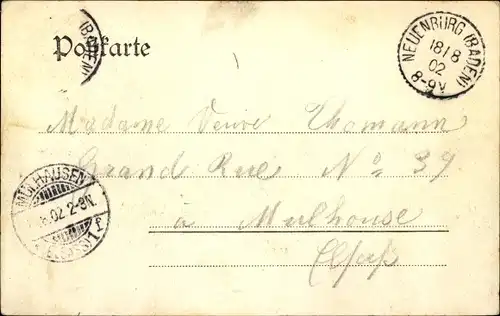 Postkarte
(BADEN)
NEUENBURG (BADEN)
18/8
02
8-9V
Madame Veuve Thomann
Grand Rue No 39
à Mulhouse
Elsaß
MÜLHAUSEN
8.02.2-3N.
(ELSASS) 1 f